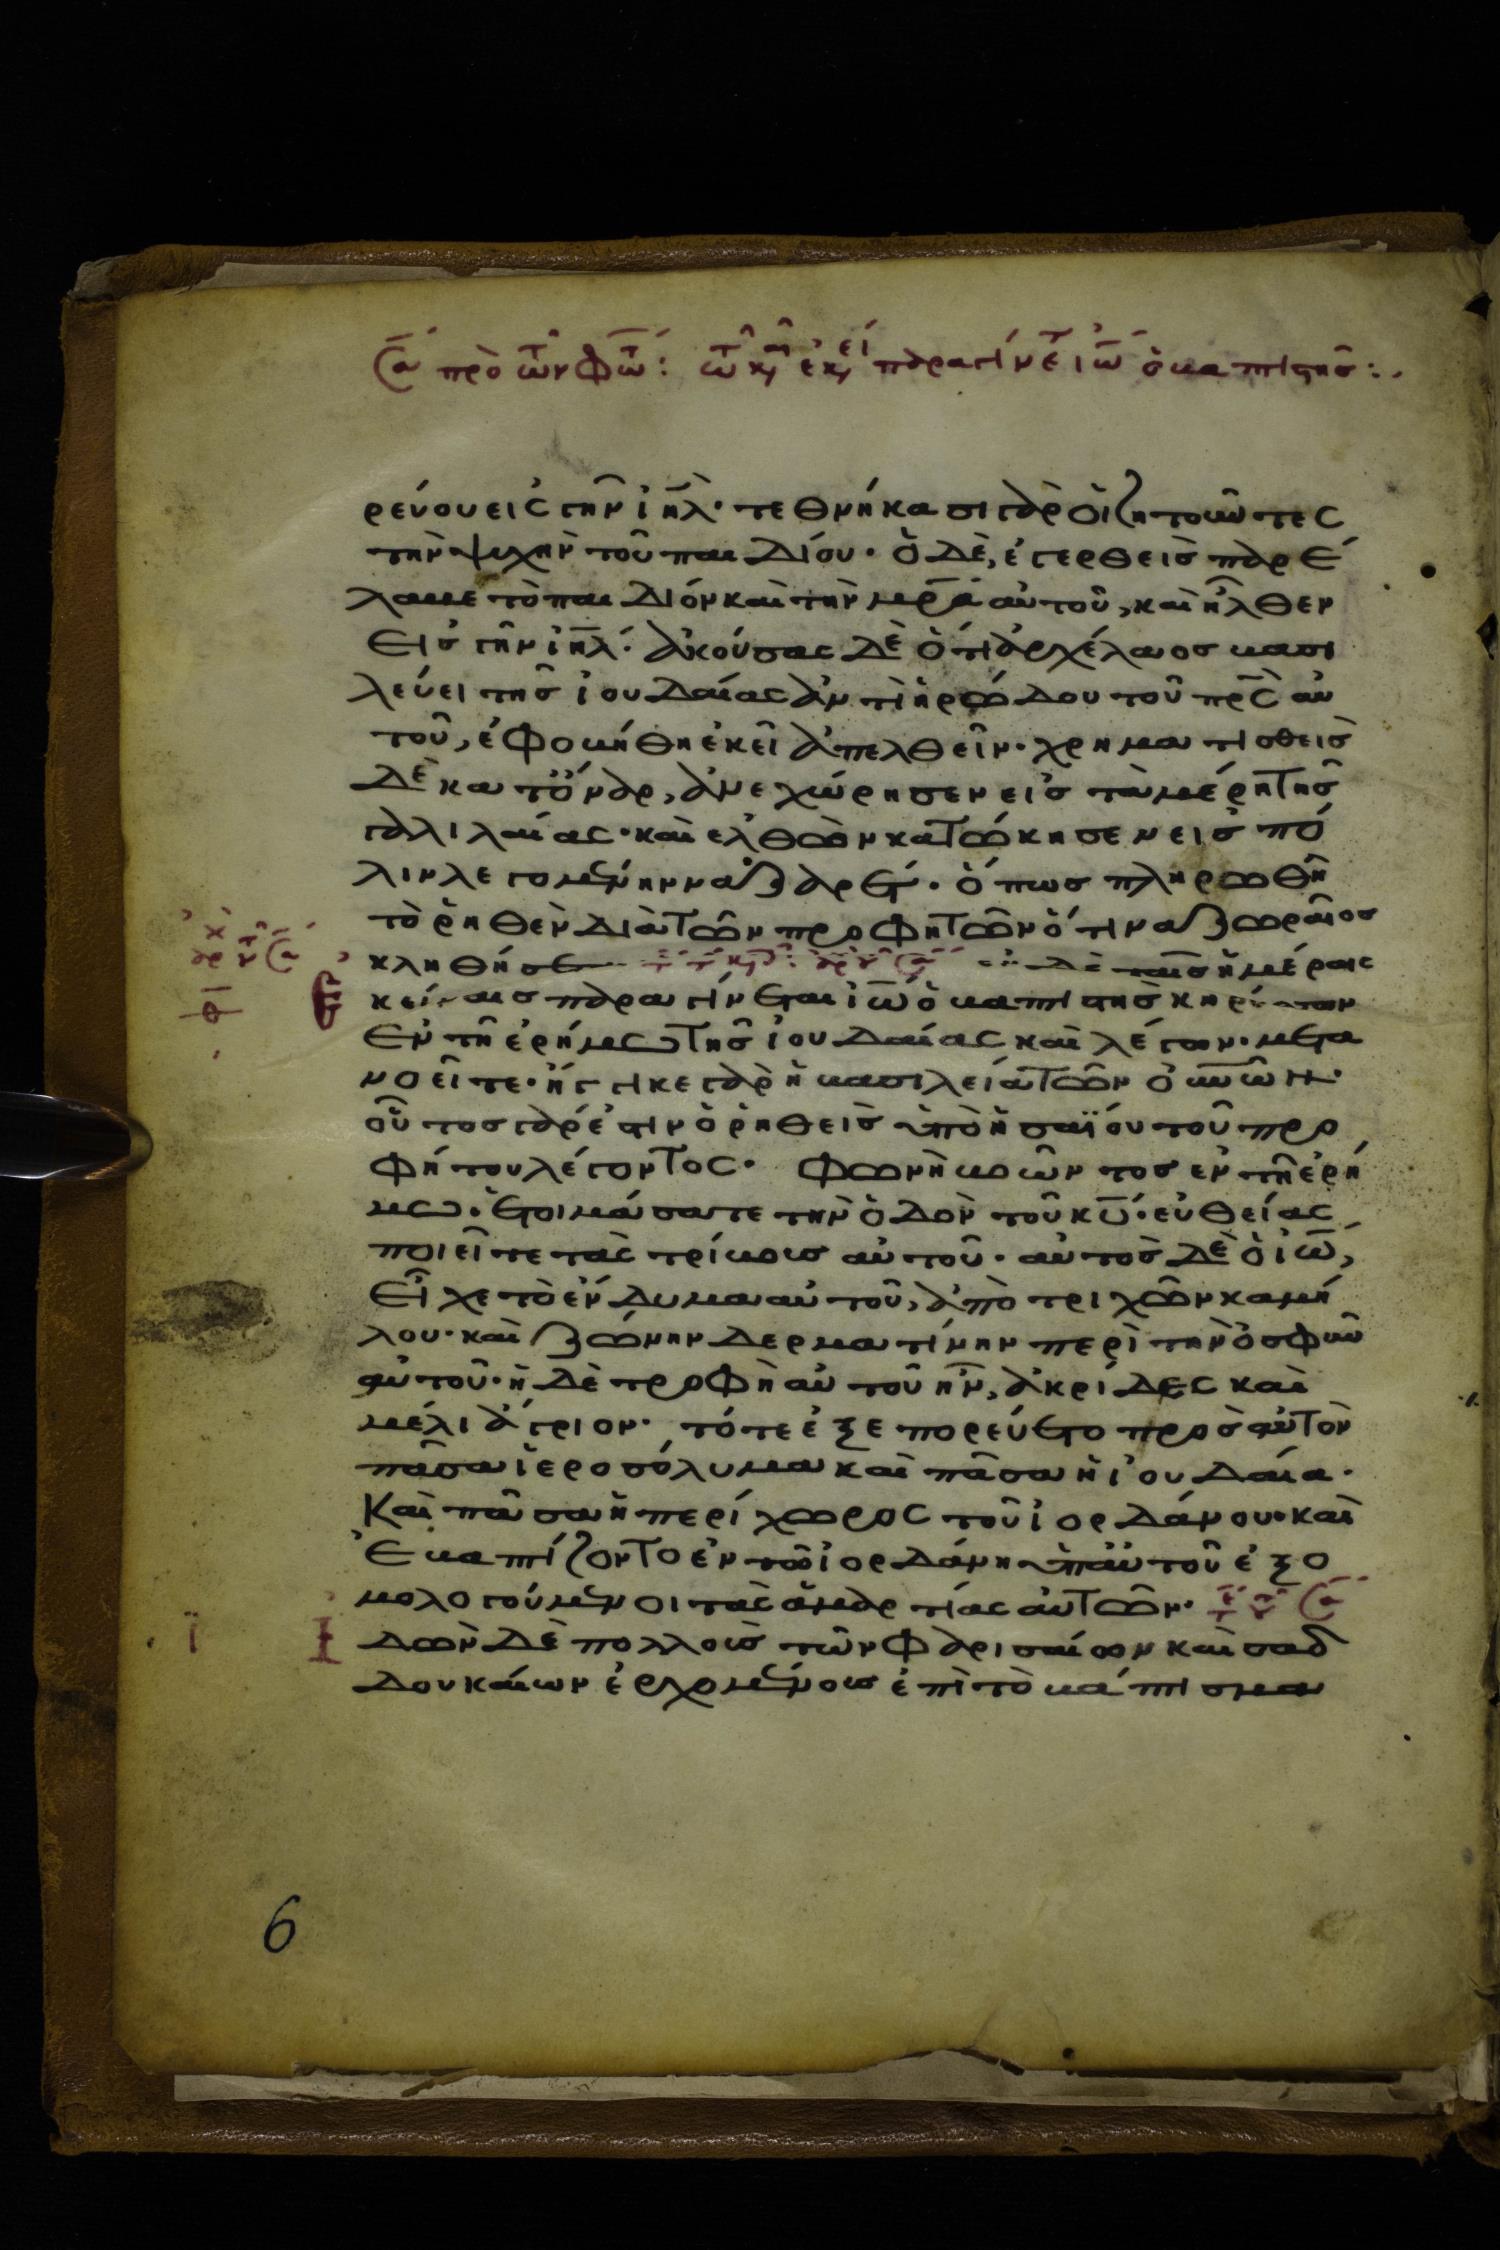 Σα πρὸ τῶν Φώτ: τῶ κ, ἐκεί παραγίνετ ιω ὁ βαπτιστησ:
ρεύου εἰς γῆν ἰηλ· τεθνήκασι γὰρ οἱ ζητοῦντες
τὴν ψυχὴν τοῦ παιδίου· ὁ δὲ, ἐγερθεὶσ παρέ
λαβε τὸ παιδίον καὶ τὴν μρα αὐτοῦ, καὶ ἦλθεν
εἰσ γῆν ἰηλ· ἀκούσας δὲ ὅτι ἀρχέλαοσ βασι
λεύει τῆσ ἰουδαίας ἀντὶ ἡρώδου τοῦ πρς αὐ
τοῦ, ἐφοβήθη ἐκεῖ ἀπελθεῖν· χρηματισθεὶσ
δὲ κατ' ὄναρ, ἀνεχώρησεν εἰσ τὰ μέρη τῆσ
γαλιλαίας· καὶ ἐλθὼν κατώκησεν εἰσ πό
λιν λεγομένην ναζαρέτ· ὅπωσ πληρωθῆ
τὸ ῥηθὲν διὰ τῶν προφητῶν ὅτι ναζωραῖοσ
κληθήσε δὲ ταῖσ ἡμέραις
κείναισ παραγίνεται ἰω ὁ βαπτιστὴσ κηρύσσων
ἐν τῆ ἐρήμω τῆσ ἰουδαίας καὶ λέγων· μετα
νοεῖτε· ἤγγικε γὰρ ἡ βασιλεία τῶν οὐνῶν·
οὗτοσ γάρ ἐστιν ὁ ῥηθεὶσ ὑπὸ ἡσαΐου τοῦ προ
φήτου λέγοντος· φωνὴ βοῶντοσ ἐν τῆ ἐρή
μω· ἑτοιμάσατε τὴν ὁδὸν τοῦ κυ· εὐθείας
ποιεῖτε τὰς τρίβουσ αὐτοῦ· αὐτὸσ δὲ ὁ ἰω,
εἶχε τὸ ἔνδυμα αὐτοῦ, ἀπὸ τριχῶν καμή
λου· καὶ ζώνην δερματίνην περὶ τὴν ὀσφῦν
αὐτοῦ· ἡ δὲ τροφὴ αὐτοῦ ἦν, ἀκρίδες καὶ
μέλι ἄγριον· τότε ἐξεπορεύετο πρὸσ αὐτὸν
πᾶσα ἱεροσόλυμα καὶ πᾶσα ἡ ἰουδαία·
καὶ πᾶσα ἡ περίχωρος τοῦ ἰορδάνου· καὶ
ἐβαπτίζοντο ἐν τῶ ἰορδάνη ὑπ' αὐτοῦ ἐξο
μολογούμενοι τὰς ἁμαρτίας αὐτῶν·
Ι δὼν δὲ πολλοὺσ τῶν φαρισαίων καὶ σαδ
δουκαίων ἐρχομένουσ ἐπὶ τὸ βάπτισμα
6